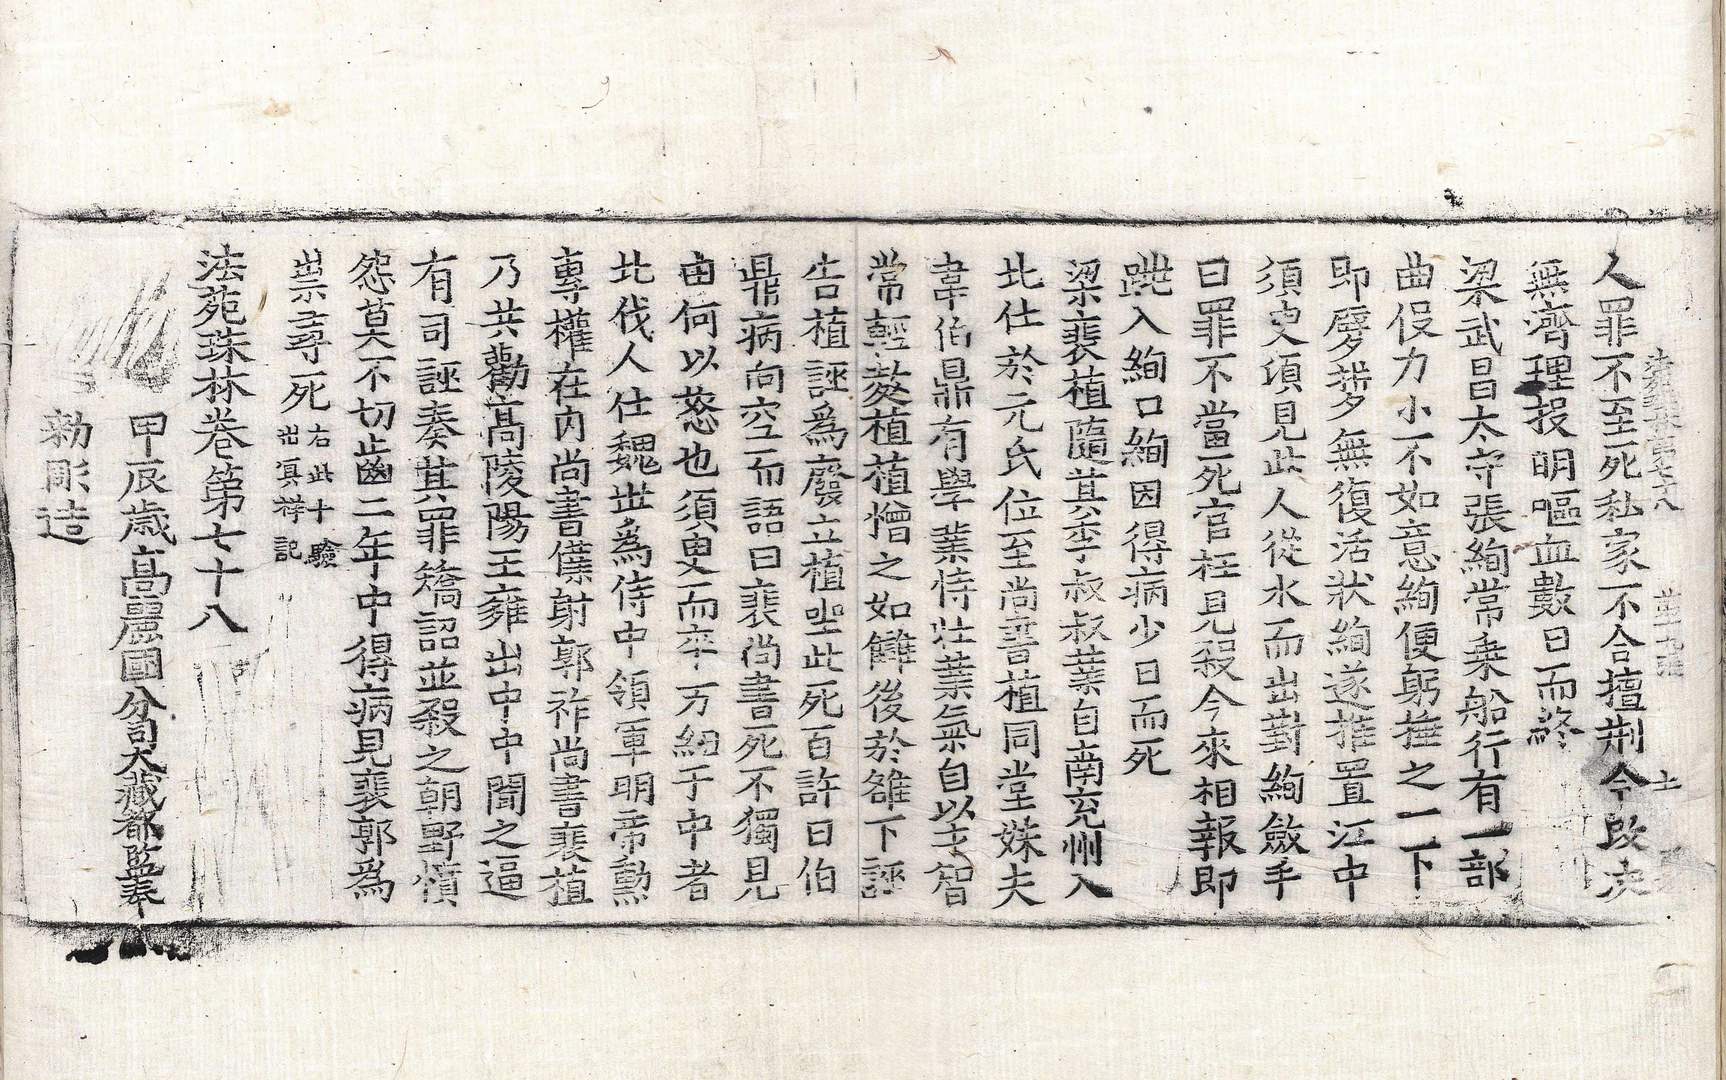 人罪不至死私家不合擅刑今改決
無濟理投明嘔血數日而終
梁武昌太守張絢常乗船行有一部
曲伇力小不如意絢便躬捶之一下
即䠊𨂂無復活狀絢遂推置江中
須臾頃見此人從水而出對絢斂手
曰罪不當死官枉見殺今來相報即
跳入絢口絢因得病少日而死
梁裴植隨其季叔叔業自南兖州入
北仕於元氏位至尚書植同堂妹夫
韋伯鼎有學業恃壯業氣自以才智
常輕蔑植植憎之如讎後於雒下誣
告植誣爲廢立植坐此死百許日伯
鼎病向空而語曰裴尚書死不獨見
由何以怒也須臾而卒一万紐于中者
北伐人仕魏世爲侍中領軍明帝勲
專權在内尚書僕射郭祚尚書裴植
乃共勸髙陵陽王雍出中中聞之逼
有司誣奏其罪矯詔並殺之朝野憤
怨莫不切齒二年中得病見裴郭爲
祟尋死右此十驗出冥祥記
法苑珠林卷第七十八
甲辰歳高麗國分司大藏都監奉
勑彫造